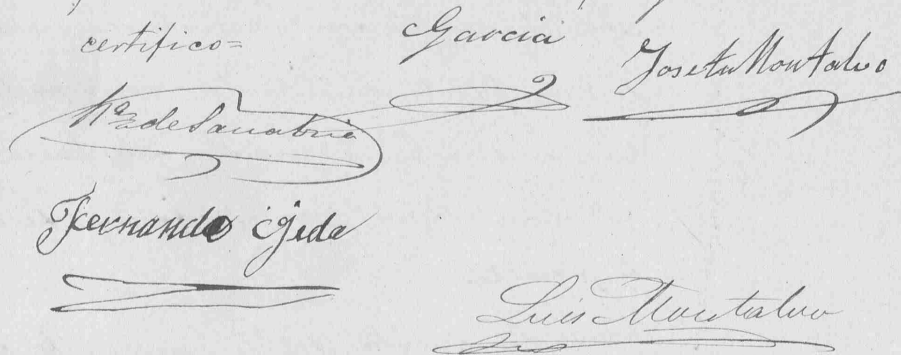 certifico=
Garcia
Josetu Montalvo
de Sanabria
Fernando Ojeda
Luis Montalvo